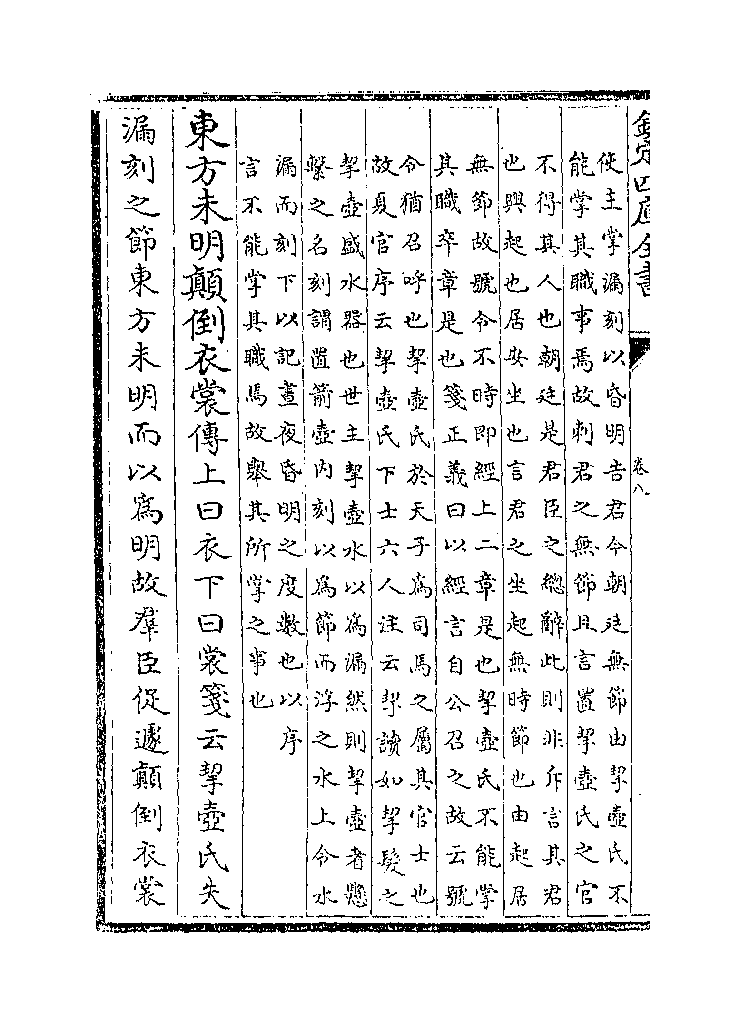 欽定四庫全書
卷八
使主掌漏刻以昏明告君今朝廷無節由挈壺氏不
能掌其職事焉故刺君之無節且言置挈壺氏之官
不得其人也朝廷是君臣之總辭此則非斥言其君
也興起也居安坐也言君之坐起無時節也由起居
無節故號令不時即經上二章是也挈壺氏不能掌
其職卒章是也箋正義曰以經言自公召之故云號
令猶召呼也挈壺氏於天子為司馬之屬其官士也
故夏官序云挈壺氏下士六人注云挈讀如挈髮之
挈壺盛水器也世主挈壺水以為漏然則挈壺者懸
繫之名刻謂置箭壺內刻以為節而浮之水上令水
漏而刻下以記晝夜昏明之度數也以序
言不能掌其職焉故舉其所掌之事也
東方未明顛倒衣裳傳上曰衣下曰裳箋云挈壺氏失
漏刻之節東方未明而以為明故羣臣促遽顛倒衣裳